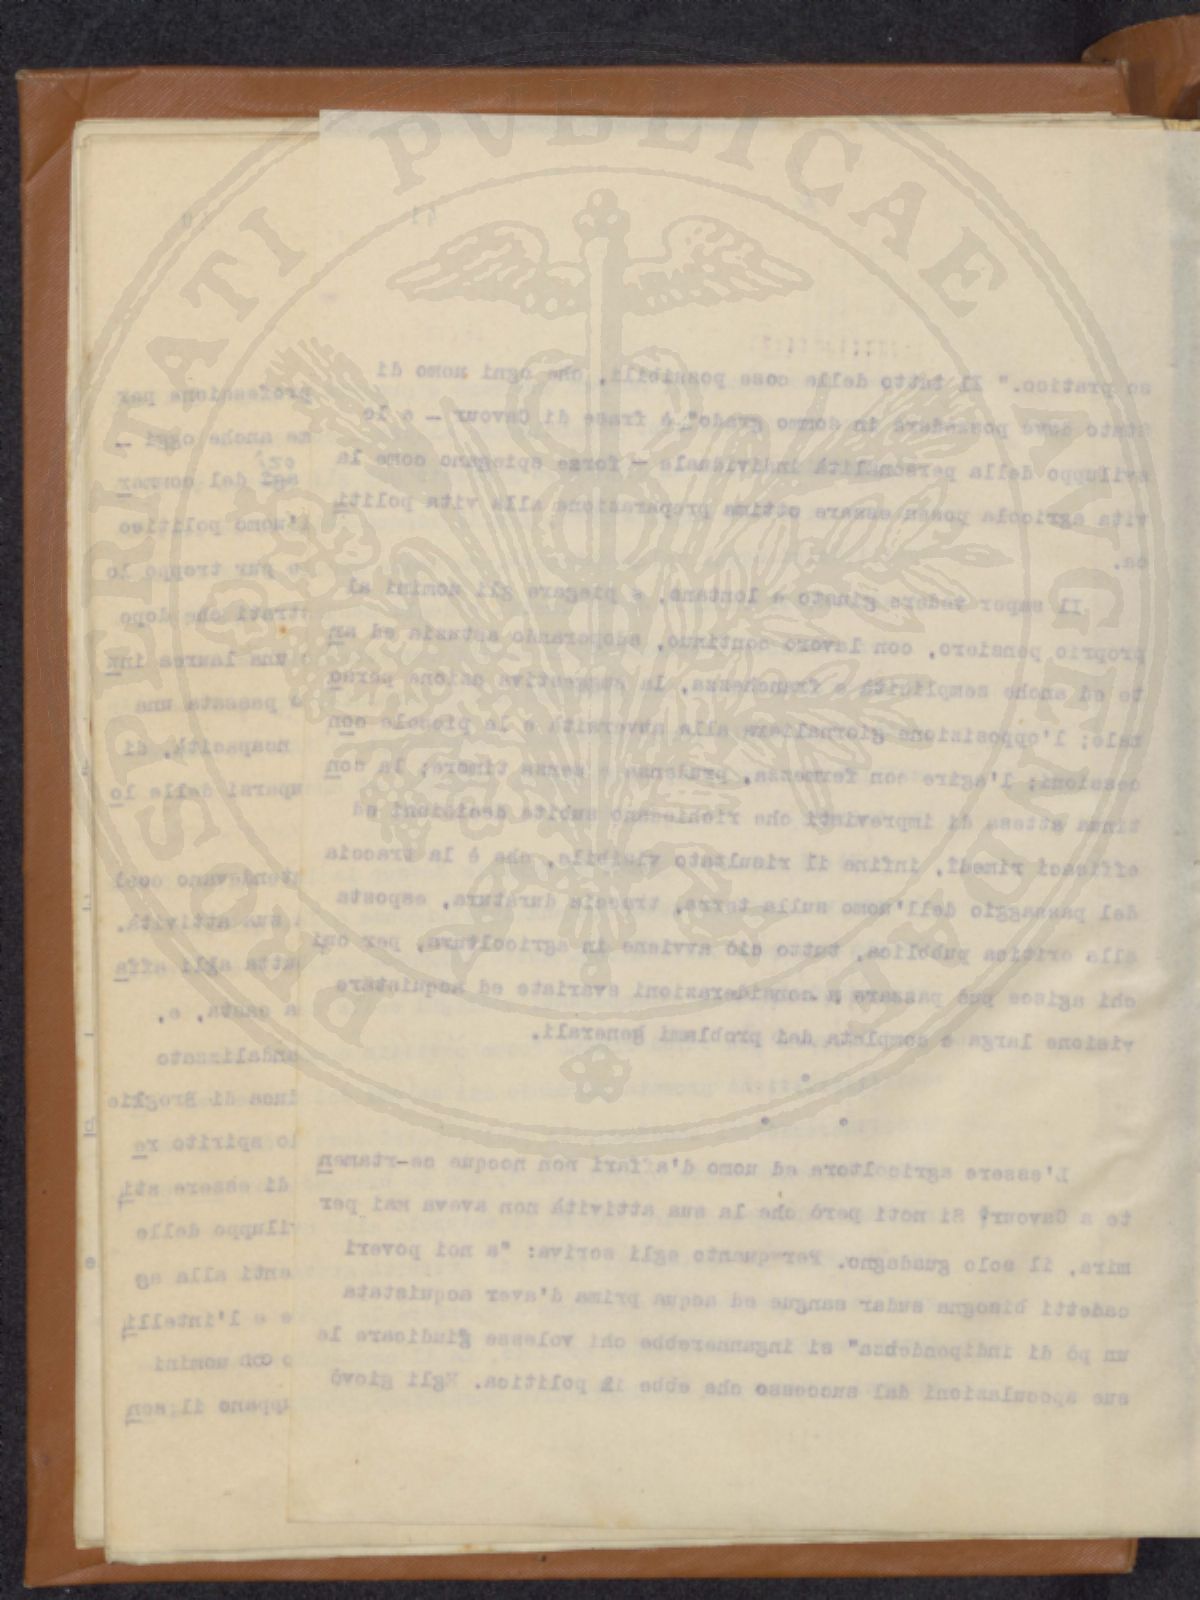 PROSPERITATI PUBLICAE AUGENDAE
41
so pratico." Il tutto delle cose possibili, che ogni uomo di
stato deve possedere in sommo grado" è frase di Cavour - e lo
sviluppo della personalità individuale - forse spiegano come la
vita agricola possa essere ottima preparazione alla vita politi
ca.
Il saper vedere giusto e lontano, e piegare gli uomini al
proprio pensiero, con lavoro continuo, adoperando astuzia ed ar
te ed anche semplicità e franchezza, la suggestiva azione perso
nale; l'opposizione giornaliera alle avversità e le piccole con
cessioni; l'agire con fermezza, prudenza e senza timore; la con
tinua attesa di imprevisti che richiedono subite decisioni ed
efficaci rimedi, infine il risultato visibile, che è la traccia
del passaggio dell'uomo sulla terra, traccia duratura, esposta
alla critica pubblica, tutto ciò avviene in agricoltura, per cui
chi agisce può passare a considerazioni svariate ed acquistare
visione larga e completa dei problemi generali.
L'essere agricoltore ed uomo d'affari non nocque ce-rtamen
te a Cavour? Si noti però che la sua attività non aveva mai per
mira, il solo guadagno. Per quanto egli scriva: "a noi poveri
cadetti bisogna sudar sangue ed acqua prima d'aver acquistata
un pò di indipendenza" si ingannerebbe chi volesse giudicare le
sue speculazioni dal successo che ebbe in politica. Egli giovò
professione per
me anche oggi -
agi del commer
l'uomo politico
pur troppo lo
strati che dopo
una laurea
passata una
ncapacità, di
uparsi delle lo
ntendevano così
sua attività.
utta agli affa
a casta, e,
andalizzato
uca di Broglie
lo spirito re
di essere sti
viluppo delle
enti alla ag
e e l'intelli
con uomini
uppano il sen